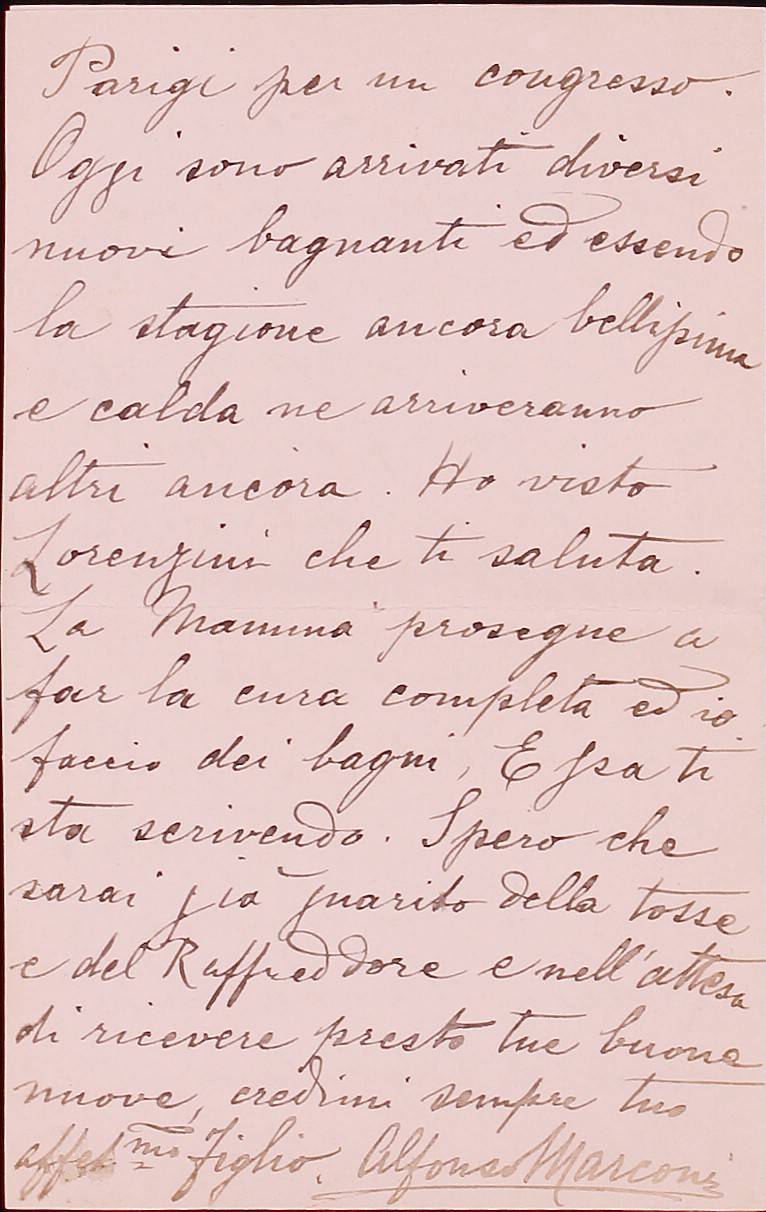 Parigi per un congresso.
Oggi sono arrivati diversi
nuovi bagnanti ed essendo
la stagione ancora bellissima
e calda ne arriveranno
altri ancora. Ho visto
Lorenzini che ti saluta.
La Mamma prosegue a
far la cura completa ed io
faccio dei bagni, Essa ti
sta scrivendo. Spero che
sarai già guarito della tosse
e del Raffreddore e nell'attesa
di ricevere presto tue buone
nuove, credimi sempre tuo
affet.mo figlio. Alfonso Marconi